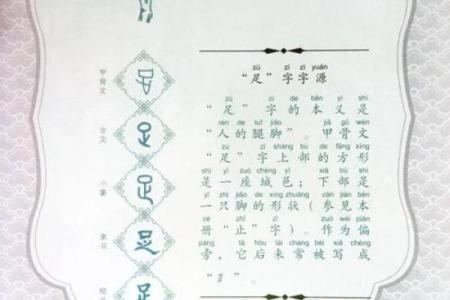 甲骨文
金文
小篆
隶书
zú zì zì yuán
“足”字字源
zú zì de běn yì shì
“足”字的本义是
rén de tuǐ jiǎo jiǎ gǔ wén
“人的腿脚”。甲骨文
zú zì shàng bù de fāng xíng
“足”字上部的方形
shì yí zuò chéng yì xià bù shì
是一座城邑；下部是
yì zhī jiǎo de xíng zhuàng cān jiàn běn
一只脚的形状（参见本
cè zhǐ zì zuò wéi piān
册“止”字）。作为偏
páng tā hòu lái cháng bèi xiě chéng
旁，它后来常被写成
“⻊”。